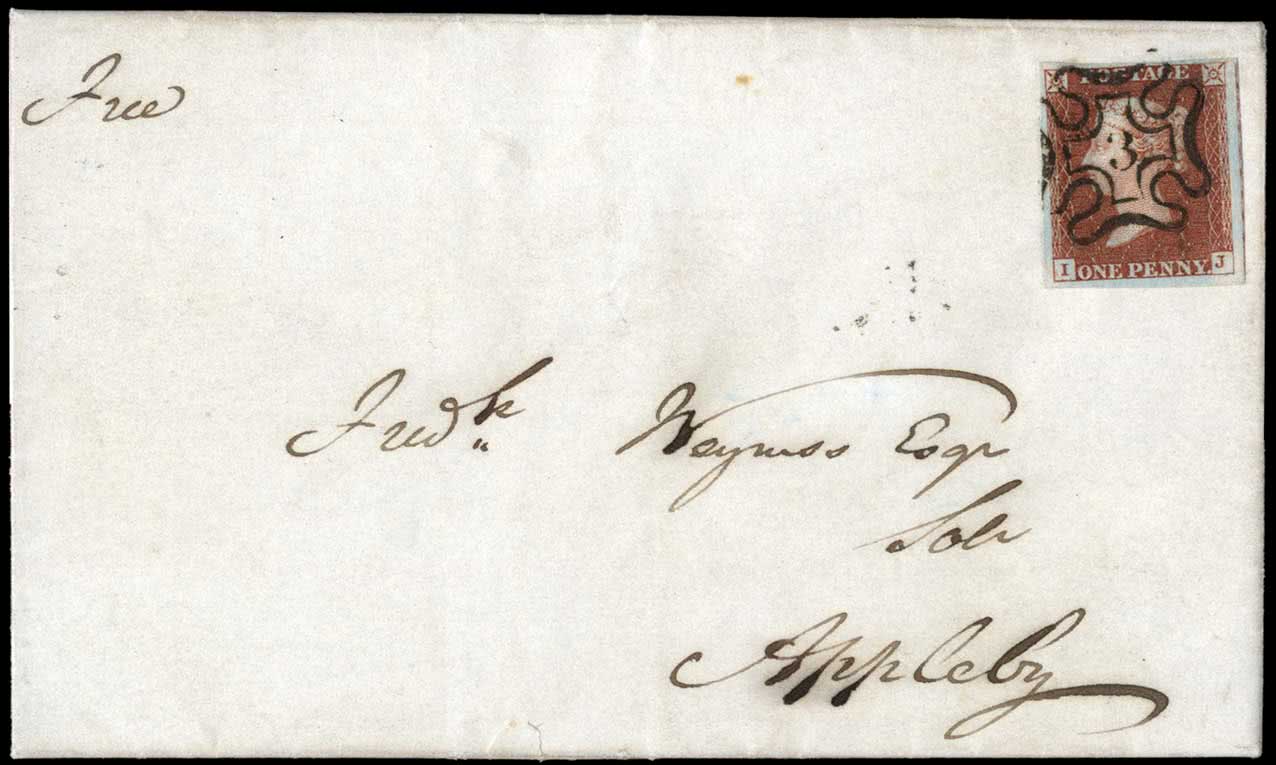 Free
POSTAGE
3
I ONE PENNY. J
Fredk Weymss Esqr
Solr
Appleby